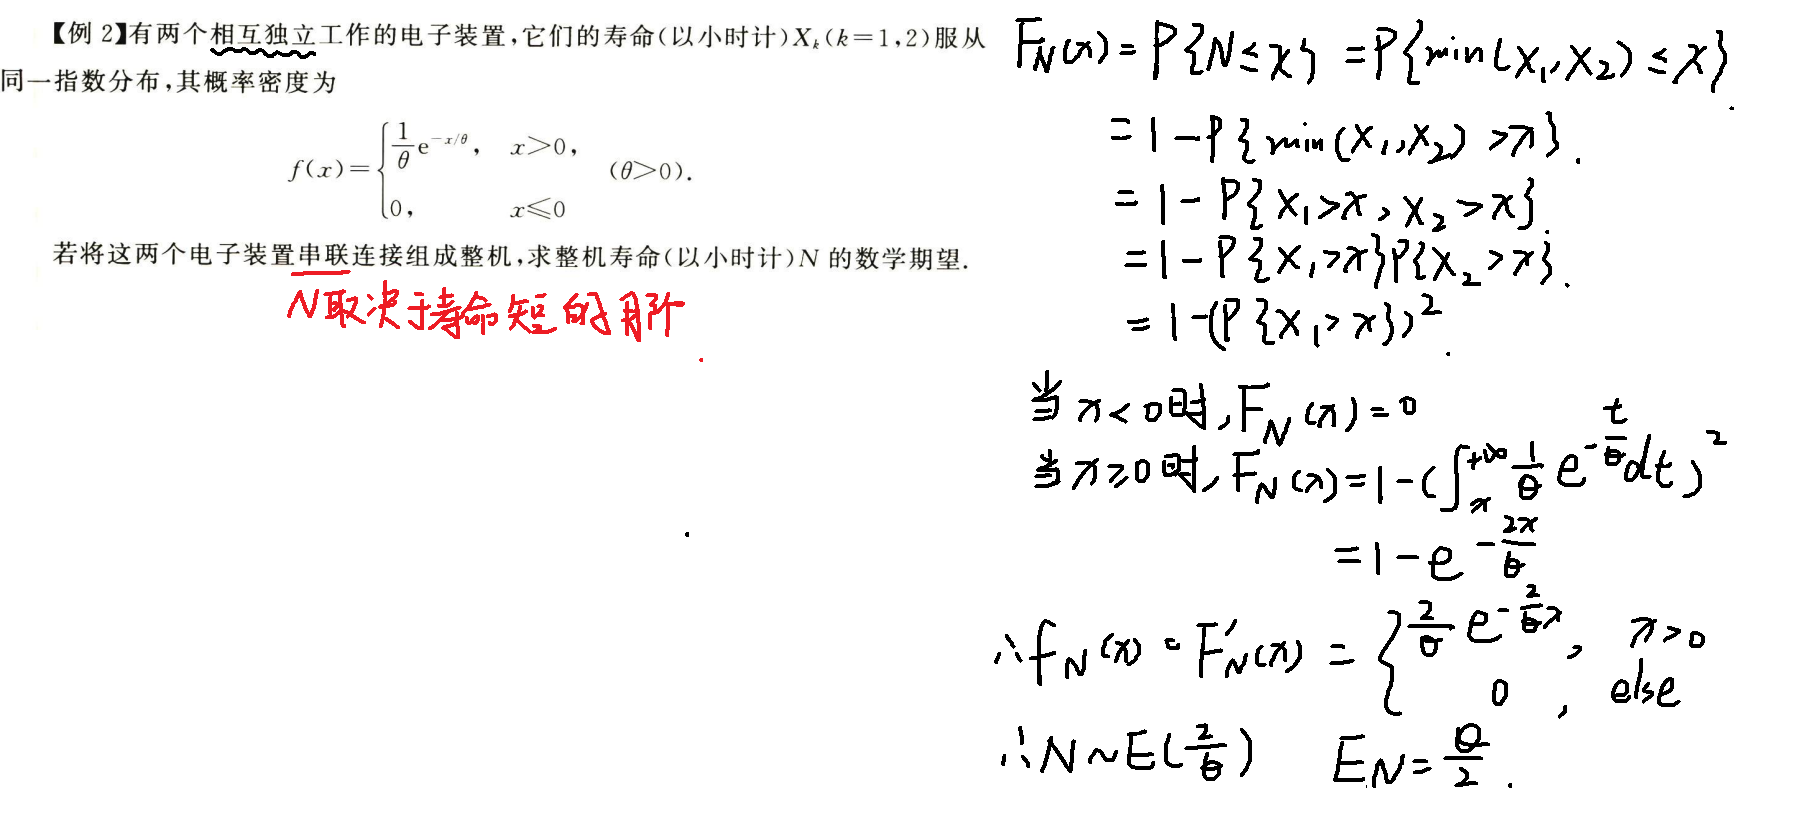 【例 2】有两个相互独立工作的电子装置,它们的寿命(以小时计)Xₖ(k=1,2)服从
同一指数分布,其概率密度为
f(x)={ 1/θ e^{-x/θ}, x>0,
0, x≤0 (θ>0).
若将这两个电子装置串联连接组成整机,求整机寿命(以小时计)N 的数学期望.
N取决于寿命短的那个
F_N(x)=P{N≤x}=P{min(X₁,X₂)≤x}
=1-P{min(X₁,X₂)>x}.
=1-P{X₁>x,X₂>x}.
=1-P{X₁>x}P{X₂>x}.
=1-(P{X₁>x})²
当x<0时,F_N(x)=0
当x≥0时,F_N(x)=1-(∫_x^{+∞} 1/θ e^{-t/θ}dt)²
=1-e^{-2x/θ}
∴f_N(x)=F'_N(x)={ 2/θ e^{-2/θ x}, x>0
0, else
∴N~E(2/θ) EN=θ/2.